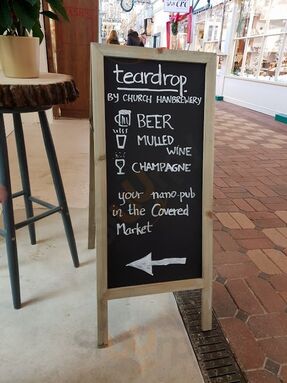 teardrop
BY CHURCH HANBREWERY
BEER
MULLED
WINE
CHAMPAGNE
your nano-pub
in the Covered
Market